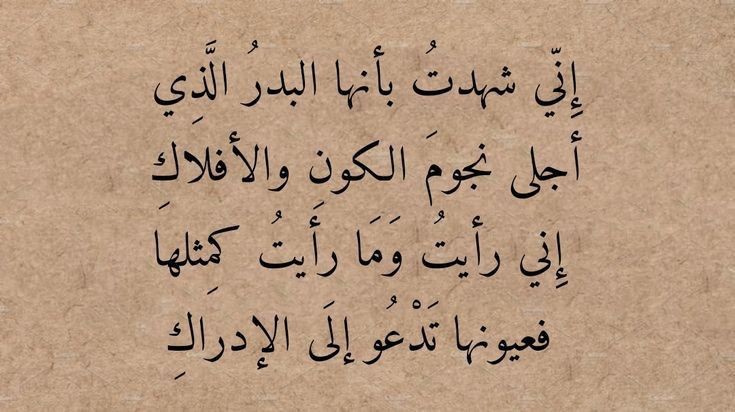 إِنّي شهدتُ بأنها البدرُ الَّذِي
أجلى نجومَ الكونِ والأفلاكِ
إِني رأيتُ وَمَا رأَيتُ كمِثلهَا
فعيونها تَدْعُو إلَى الإدراكِ